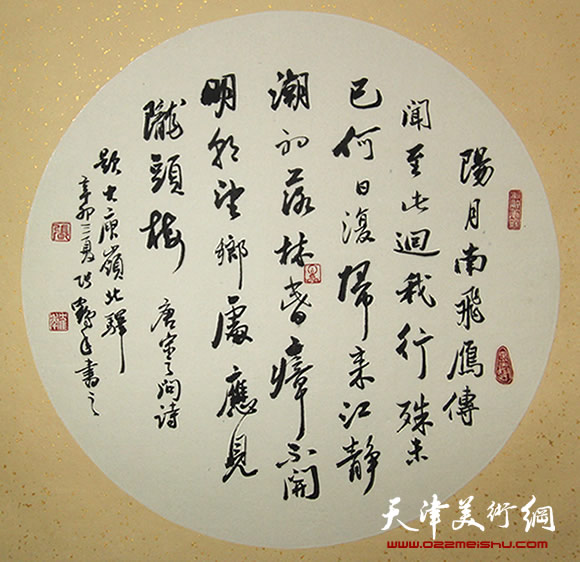 陽月南飛鴈傳
聞至此迴我行殊未
已何日復歸来江靜
潮初落林昏瘴不開
明朝望鄉處應見
隴頭梅
唐宋之问詩
題大庾嶺北驛
辛卯三夏張鶴年書之
天津美術網
www.022meishu.com